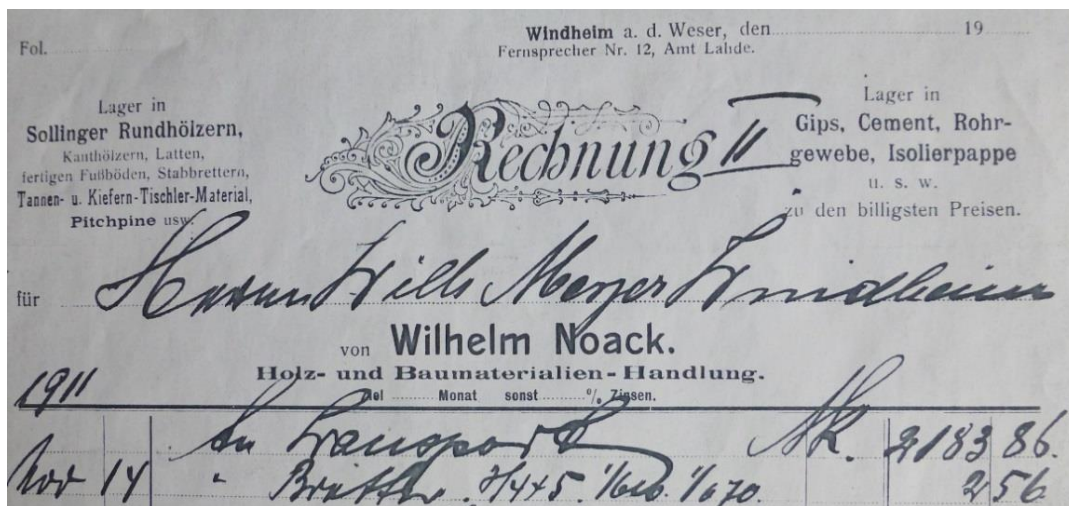 Fol.
Windheim a. d. Weser, den 19
Fernsprecher Nr. 12, Amt Lahde.
Lager in
Sollinger Rundhölzern,
Kanthölzern, Latten,
fertigen Fußböden, Stabbrettern,
Tannen- u. Kiefern-Tischler-Material,
Pitchpine usw.
Rechnung II
Lager in
Gips, Cement, Rohr-
gewebe, Isolierpappe
u. s. w.
zu den billigsten Preisen.
für Herrn Wilh Meyer Windheim
von Wilhelm Noack.
Holz- und Baumaterialien-Handlung.
Ziel Monat sonst % Zinsen.
1911
An Transport Mk. 2183 86.
Nov 14 " Bretter 2 56